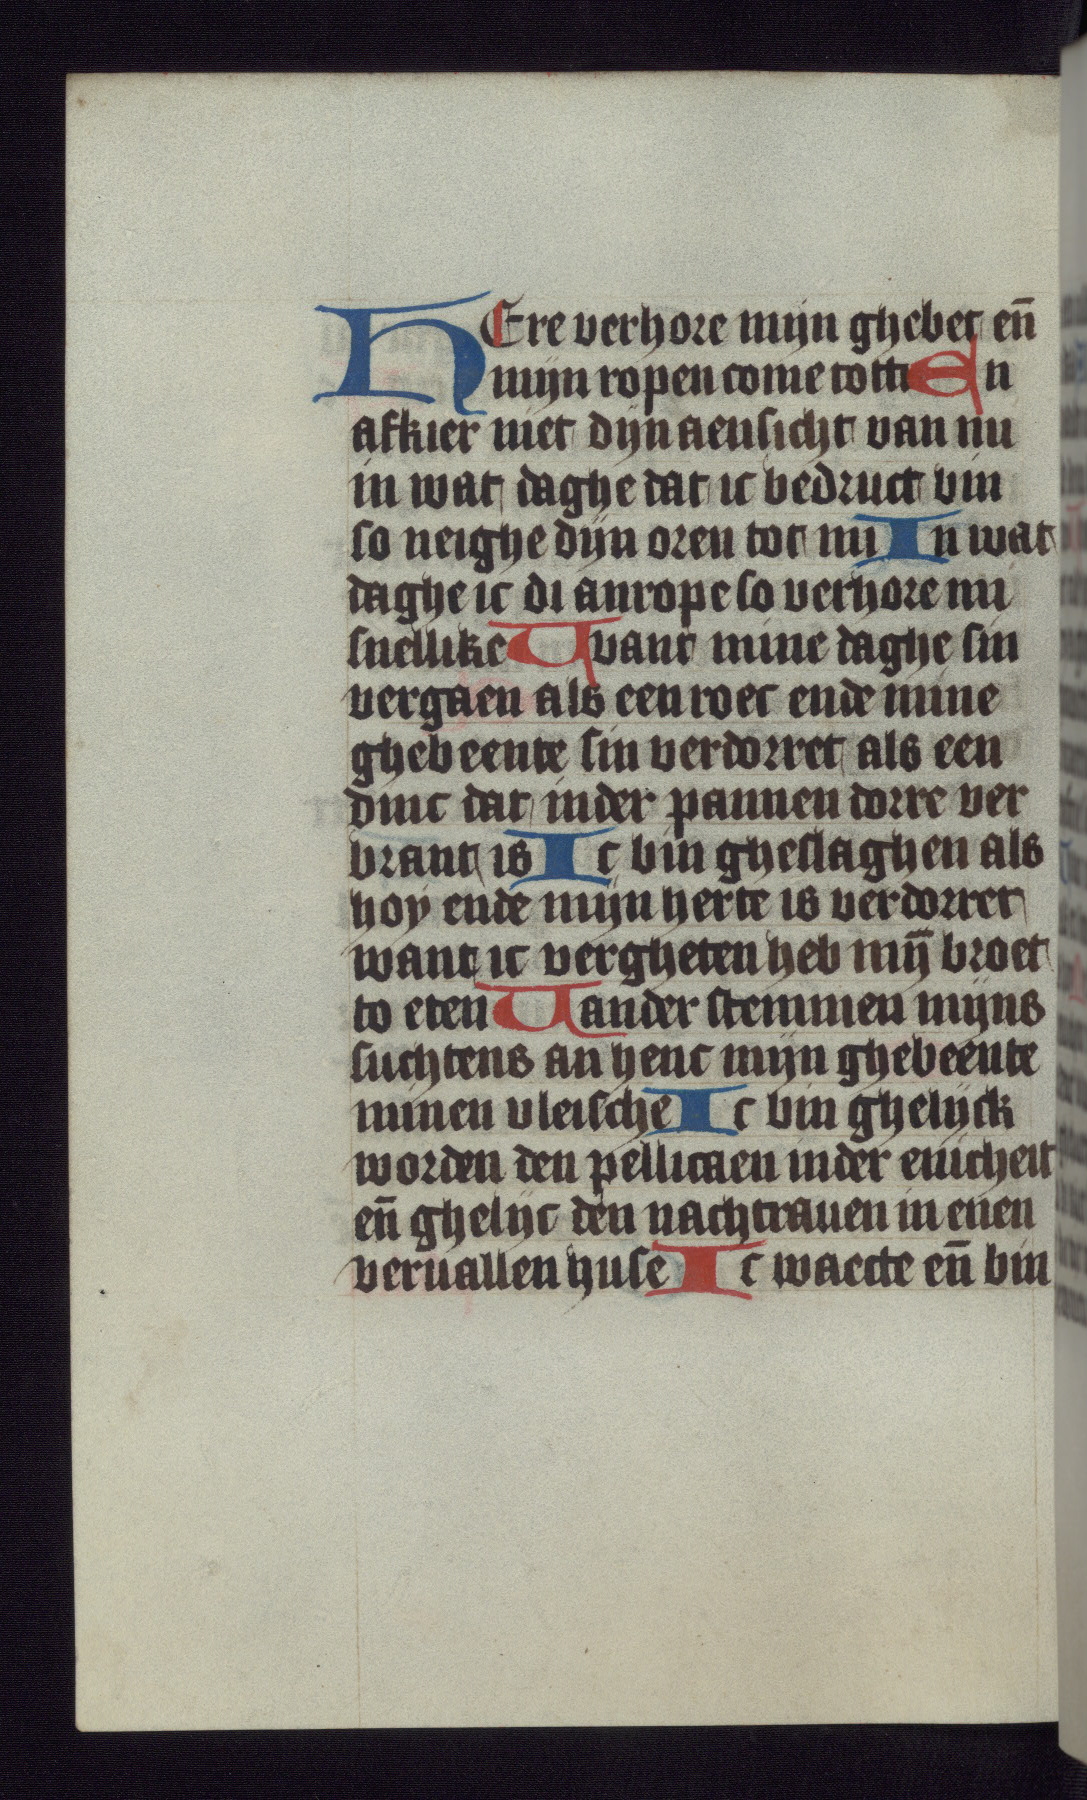 HEre verhore mijn ghebet en̄
mijn ropen come totti En
afkier niet dijn aensicht van mi
in wat daghe dat ic bedruct bin
so neighe dijn oren tot mi In wat
daghe ic di anrope so verhore mi
snellike Want mine daghe sin
vergaen als een roec ende mine
ghebeente sin verdorret als een
dinc dat inder pannen dorre ver
brant is Ic bin gheslaghen als
hoy ende mijn herte is verdorret
want ic vergheten heb mij̄ broet
to eten Vander stemmen mijns
suchtens an henc mijn ghebeente
minen vleische Ic bin ghelijck
worden den pellicaen inder enicheit
en̄ ghelijc den nachtrauen in enen
veruallen huse Ic waecte en̄ bin